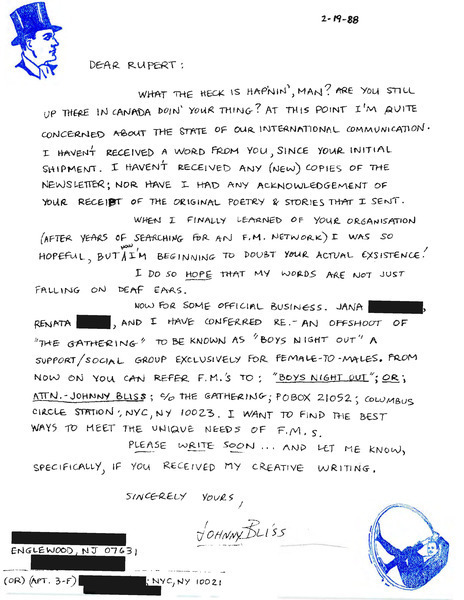 2-19-88
DEAR RUPERT:
WHAT THE HECK IS HAP'NIN', MAN? ARE YOU STILL
UP THERE IN CANADA DOIN' YOUR THING? AT THIS POINT I'M QUITE
CONCERNED ABOUT THE STATE OF OUR INTERNATIONAL COMMUNICATION.
I HAVEN'T RECEIVED A WORD FROM YOU, SINCE YOUR INITIAL
SHIPMENT. I HAVEN'T RECEIVED ANY (NEW) COPIES OF THE
NEWSLETTER; NOR HAVE I HAD ANY ACKNOWLEDGEMENT OF
YOUR RECEIPT OF THE ORIGINAL POETRY & STORIES THAT I SENT.
WHEN I FINALLY LEARNED OF YOUR ORGANISATION
(AFTER YEARS OF SEARCHING FOR AN F.M. NETWORK) I WAS SO
HOPEFUL, BUT NOW I'M BEGINNING TO DOUBT YOUR ACTUAL EXSISTENCE!
I DO SO HOPE THAT MY WORDS ARE NOT JUST
FALLING ON DEAF EARS.
NOW FOR SOME OFFICIAL BUSINESS. JANA ,
RENATA , AND I HAVE CONFERRED RE.- AN OFFSHOOT OF
"THE GATHERING" TO BE KNOWN AS "BOYS NIGHT OUT" A
SUPPORT/SOCIAL GROUP EXCLUSIVELY FOR FEMALE-TO-MALES. FROM
NOW ON YOU CAN REFER F.M.'S TO: "BOYS NIGHT OUT"; OR;
ATTN.- JOHNNY BLISS; C/O THE GATHERING; PO BOX 21052; COLUMBUS
CIRCLE STATION; NYC, NY 10023. I WANT TO FIND THE BEST
WAYS TO MEET THE UNIQUE NEEDS OF F.M.S.
PLEASE WRITE SOON ... AND LET ME KNOW,
SPECIFICALLY, IF YOU RECEIVED MY CREATIVE WRITING.
SINCERELY YOURS,
JOHNNY BLISS
ENGLEWOOD, NJ 07631
(OR) (APT. 3-F) ; NYC, NY 10021